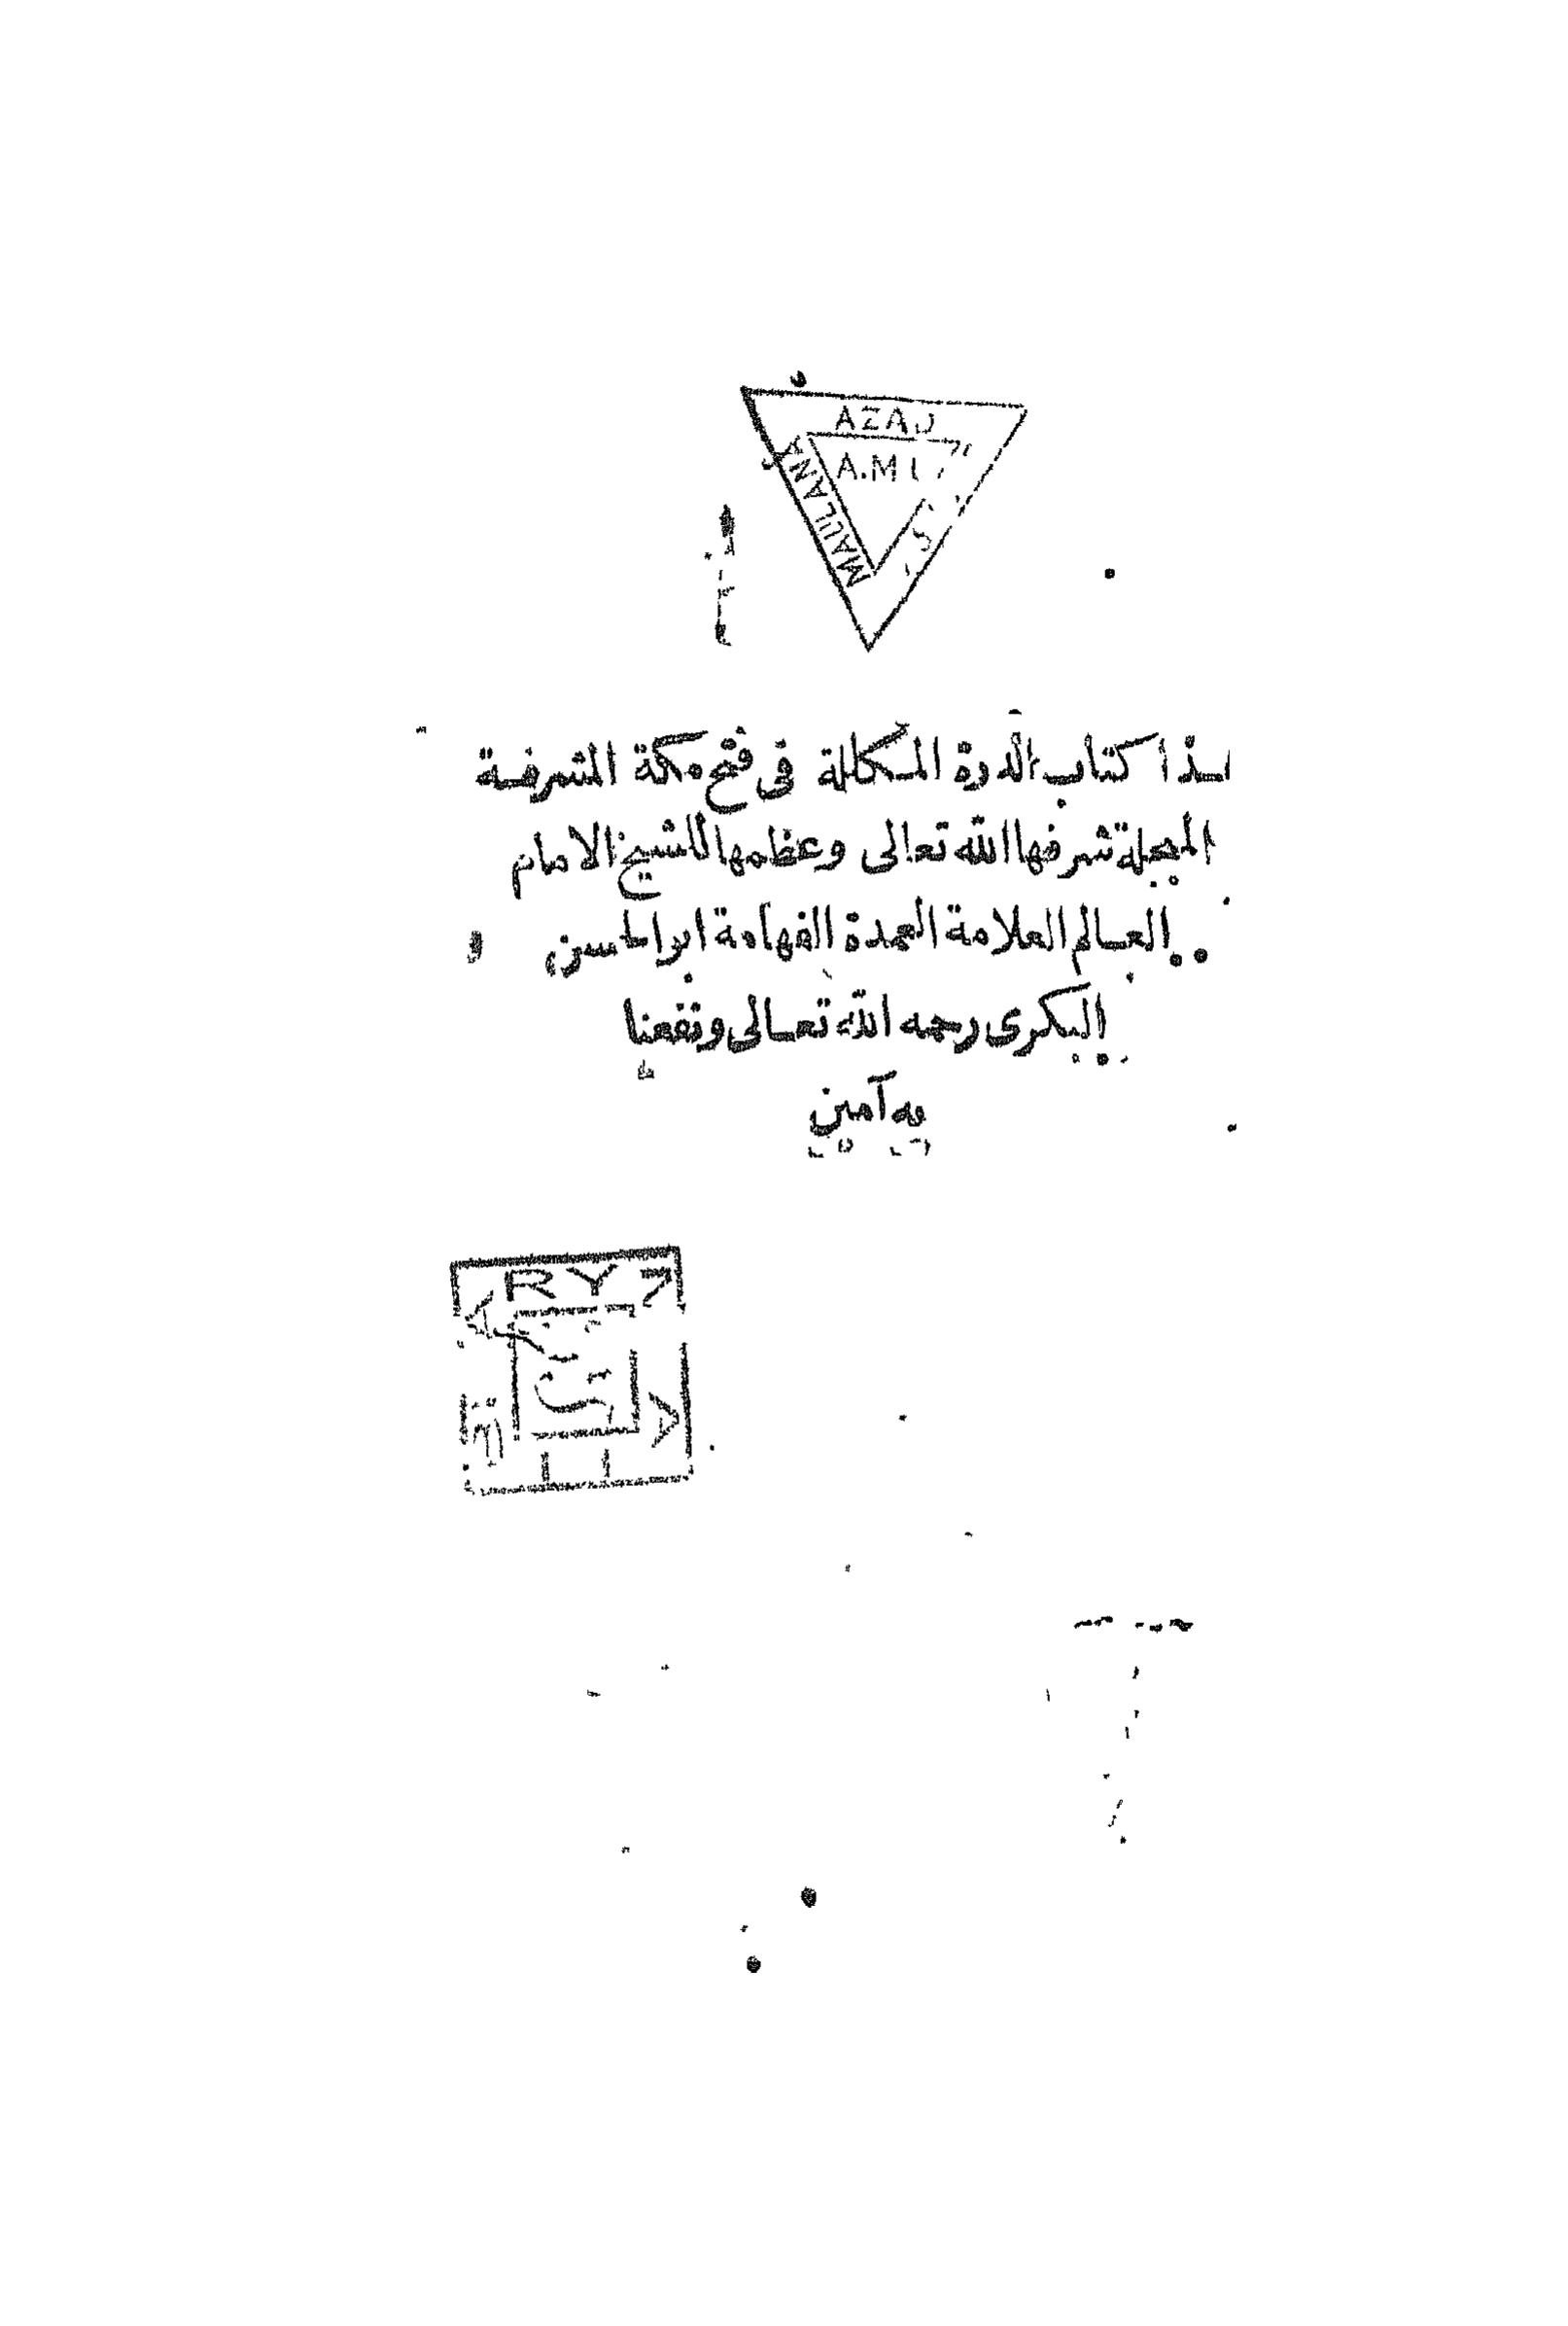 AZAD
MAULANA
A.M
هذا كتاب الدرة المكللة فى فتح مكة المشرفة
المبجلة شرفها الله تعالى وعظمها للشيخ الامام
العالم العلامة العمدة الفهامة ابوالحسن
البكرى رحمه الله تعالى ونفعنا
به آمين
RY